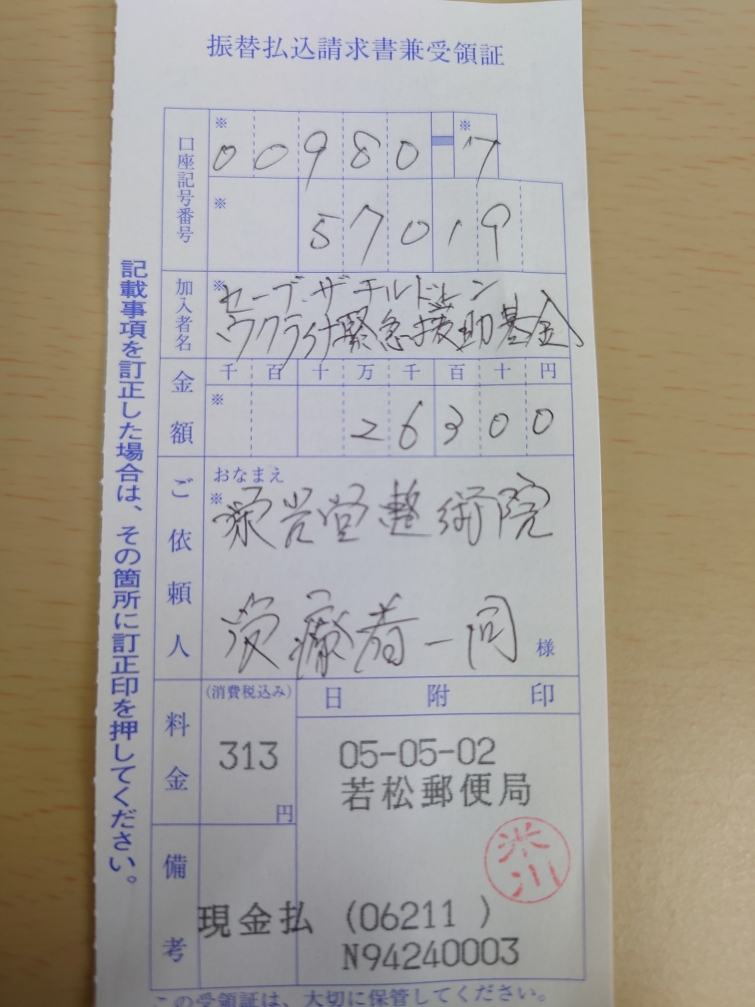 振替払込請求書兼受領証
口座記号番号
※
00980-7
※
※
57019
加入者名
※
セーブ・ザ・チルドレン
ウクライナ緊急援助基金
金額
千百十万千百十円
※
26300
ご依頼人
おなまえ
※
堂整術院
受療者一同
様
料金
(消費税込み)
313
円
日附印
05-05-02
若松郵便局
米川
備考
現金払 (06211 )
N94240003
この受領証は、大切に保管してください。
記載事項を訂正した場合は、その箇所に訂正印を押してください。